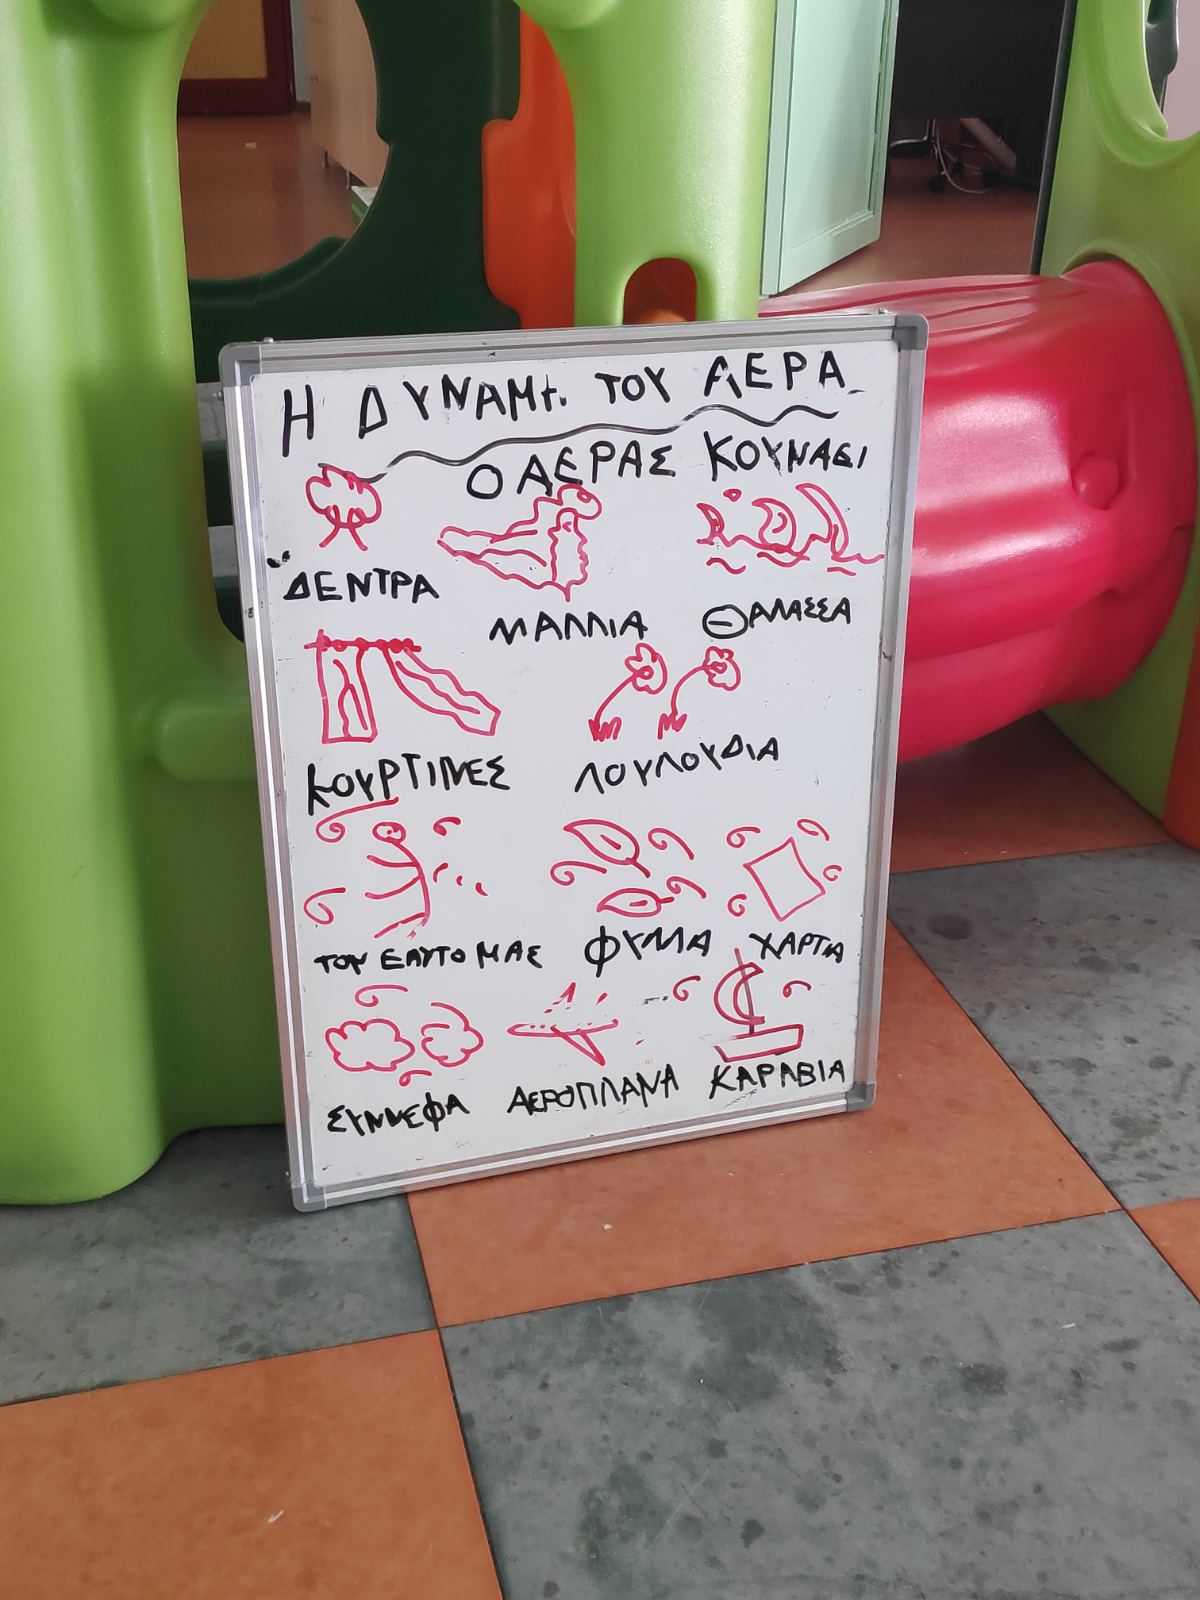 Η ΔΥΝΑΜΗ ΤΟΥ ΑΕΡΑ
Ο ΑΕΡΑΣ ΚΟΥΝΑΕΙ
ΔΕΝΤΡΑ
ΜΑΛΛΙΑ ΘΑΛΑΣΣΑ
ΚΟΥΡΤΙΝΕΣ ΛΟΥΛΟΥΔΙΑ
ΤΟΝ ΕΑΥΤΟ ΜΑΣ ΦΥΛΛΑ ΧΑΡΤΙΑ
ΣΥΝΝΕΦΑ ΑΕΡΟΠΛΑΝΑ ΚΑΡΑΒΙΑ